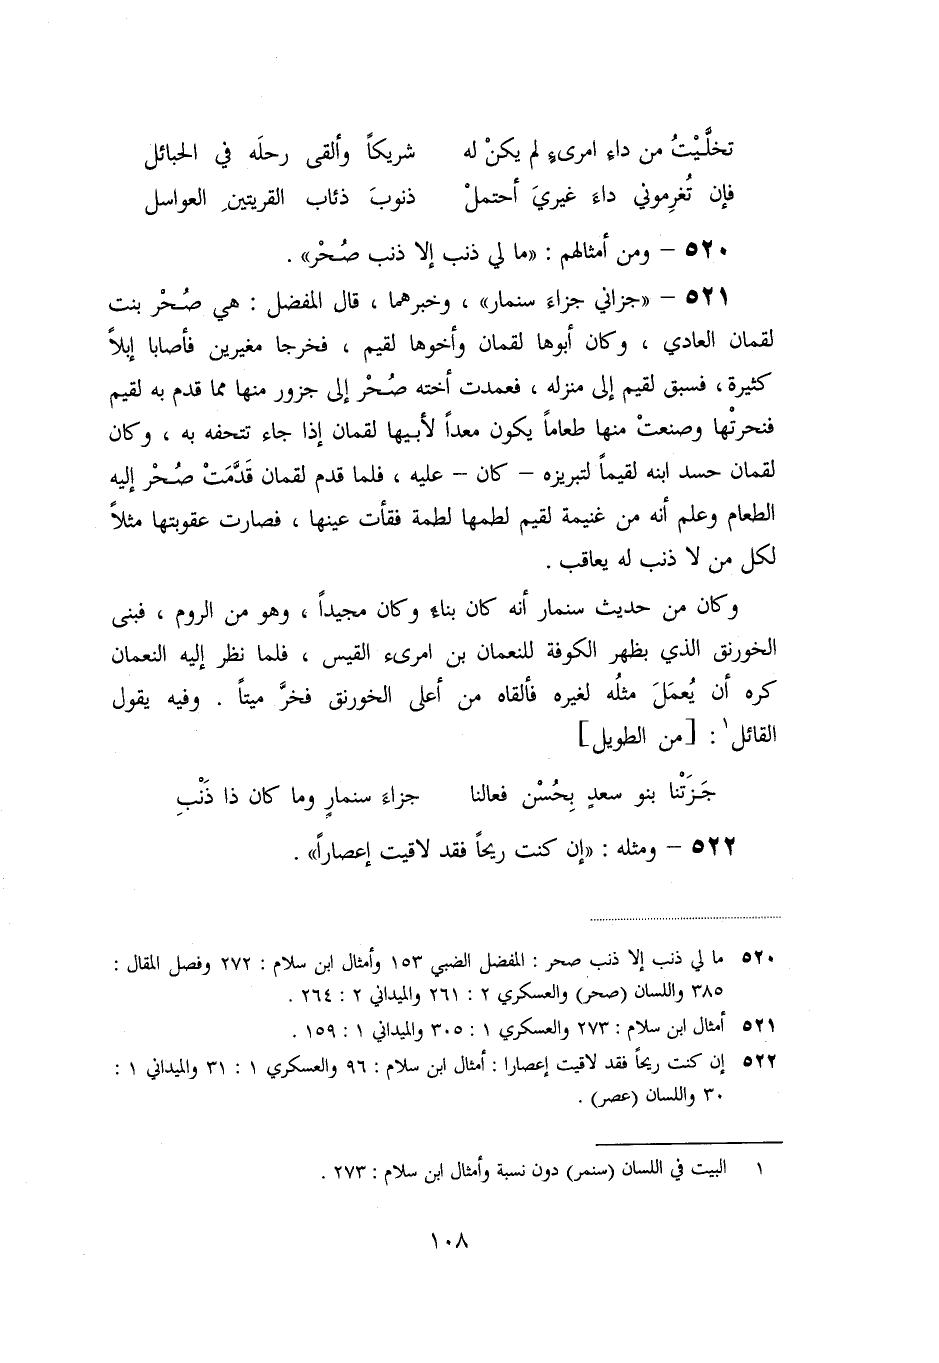 تخلَّيْتُ من داءِ امرىءٍ لم يكنْ له شريكاً وألقى رحلَه في الحبائل
فإن تُغرِموني داءَ غيريَ أحتملْ ذنوبَ ذئاب القريتينِ العواسل
٥٢٠ – ومن أمثالهم : «ما لي ذنب إلا ذنب صُحْر» .
٥٢١ – «جزاني جزاءَ سنمار» ، وخبرهما ، قال المفضل : هي صُحْر بنت
لقمان العادي ، وكان أبوها لقمان وأخوها لقيم ، فخرجا مغيرين فأصابا إبلاً
كثيرة ، فسبق لقيم إلى منزله ، فعمدت أخته صُحْر إلى جزور منها مما قدم به لقيم
فنحرتْها وصنعتْ منها طعاماً يكون معداً لأبيها لقمان إذا جاء تتحفه به ، وكان
لقمان حسد ابنه لقيماً لتبريزه – كان – عليه ، فلما قدم لقمان قَدَّمَتْ صُحْر إليه
الطعام وعلم أنه من غنيمة لقيم لطمها لطمة فقأت عينها ، فصارت عقوبتها مثلاً
لكل من لا ذنب له يعاقب .
وكان من حديث سنمار أنه كان بناءً وكان مجيداً ، وهو من الروم ، فبنى
الخورنق الذي بظهر الكوفة للنعمان بن امرىء القيس ، فلما نظر إليه النعمان
كره أن يُعمَلَ مثلُه لغيره فألقاه من أعلى الخورنق فخرَّ ميتاً . وفيه يقول
القائل١ : [من الطويل]
جَزَتْنا بنو سعدٍ بِحُسْن فعالنا جزاءَ سنمارٍ وما كان ذا ذَنْبِ
٥٢٢ – ومثله : «إن كنت ريحاً فقد لاقيت إعصاراً» .
٥٢٠ ما لي ذنب إلا ذنب صحر : المفضل الضبي ١٥٣ وأمثال ابن سلام : ٢٧٢ وفصل المقال :
٣٨٥ واللسان (صحر) والعسكري ٢ : ٢٦١ والميداني ٢ : ٢٦٤ .
٥٢١ أمثال ابن سلام : ٢٧٣ والعسكري ١ : ٣٠٥ والميداني ١ : ١٥٩ .
٥٢٢ إن كنت ريحاً فقد لاقيت إعصارا : أمثال ابن سلام : ٩٦ والعسكري ١ : ٣١ والميداني ١ :
٣٠ واللسان (عصر) .
١ البيت في اللسان (سنمر) دون نسبة وأمثال ابن سلام : ٢٧٣ .
١٠٨